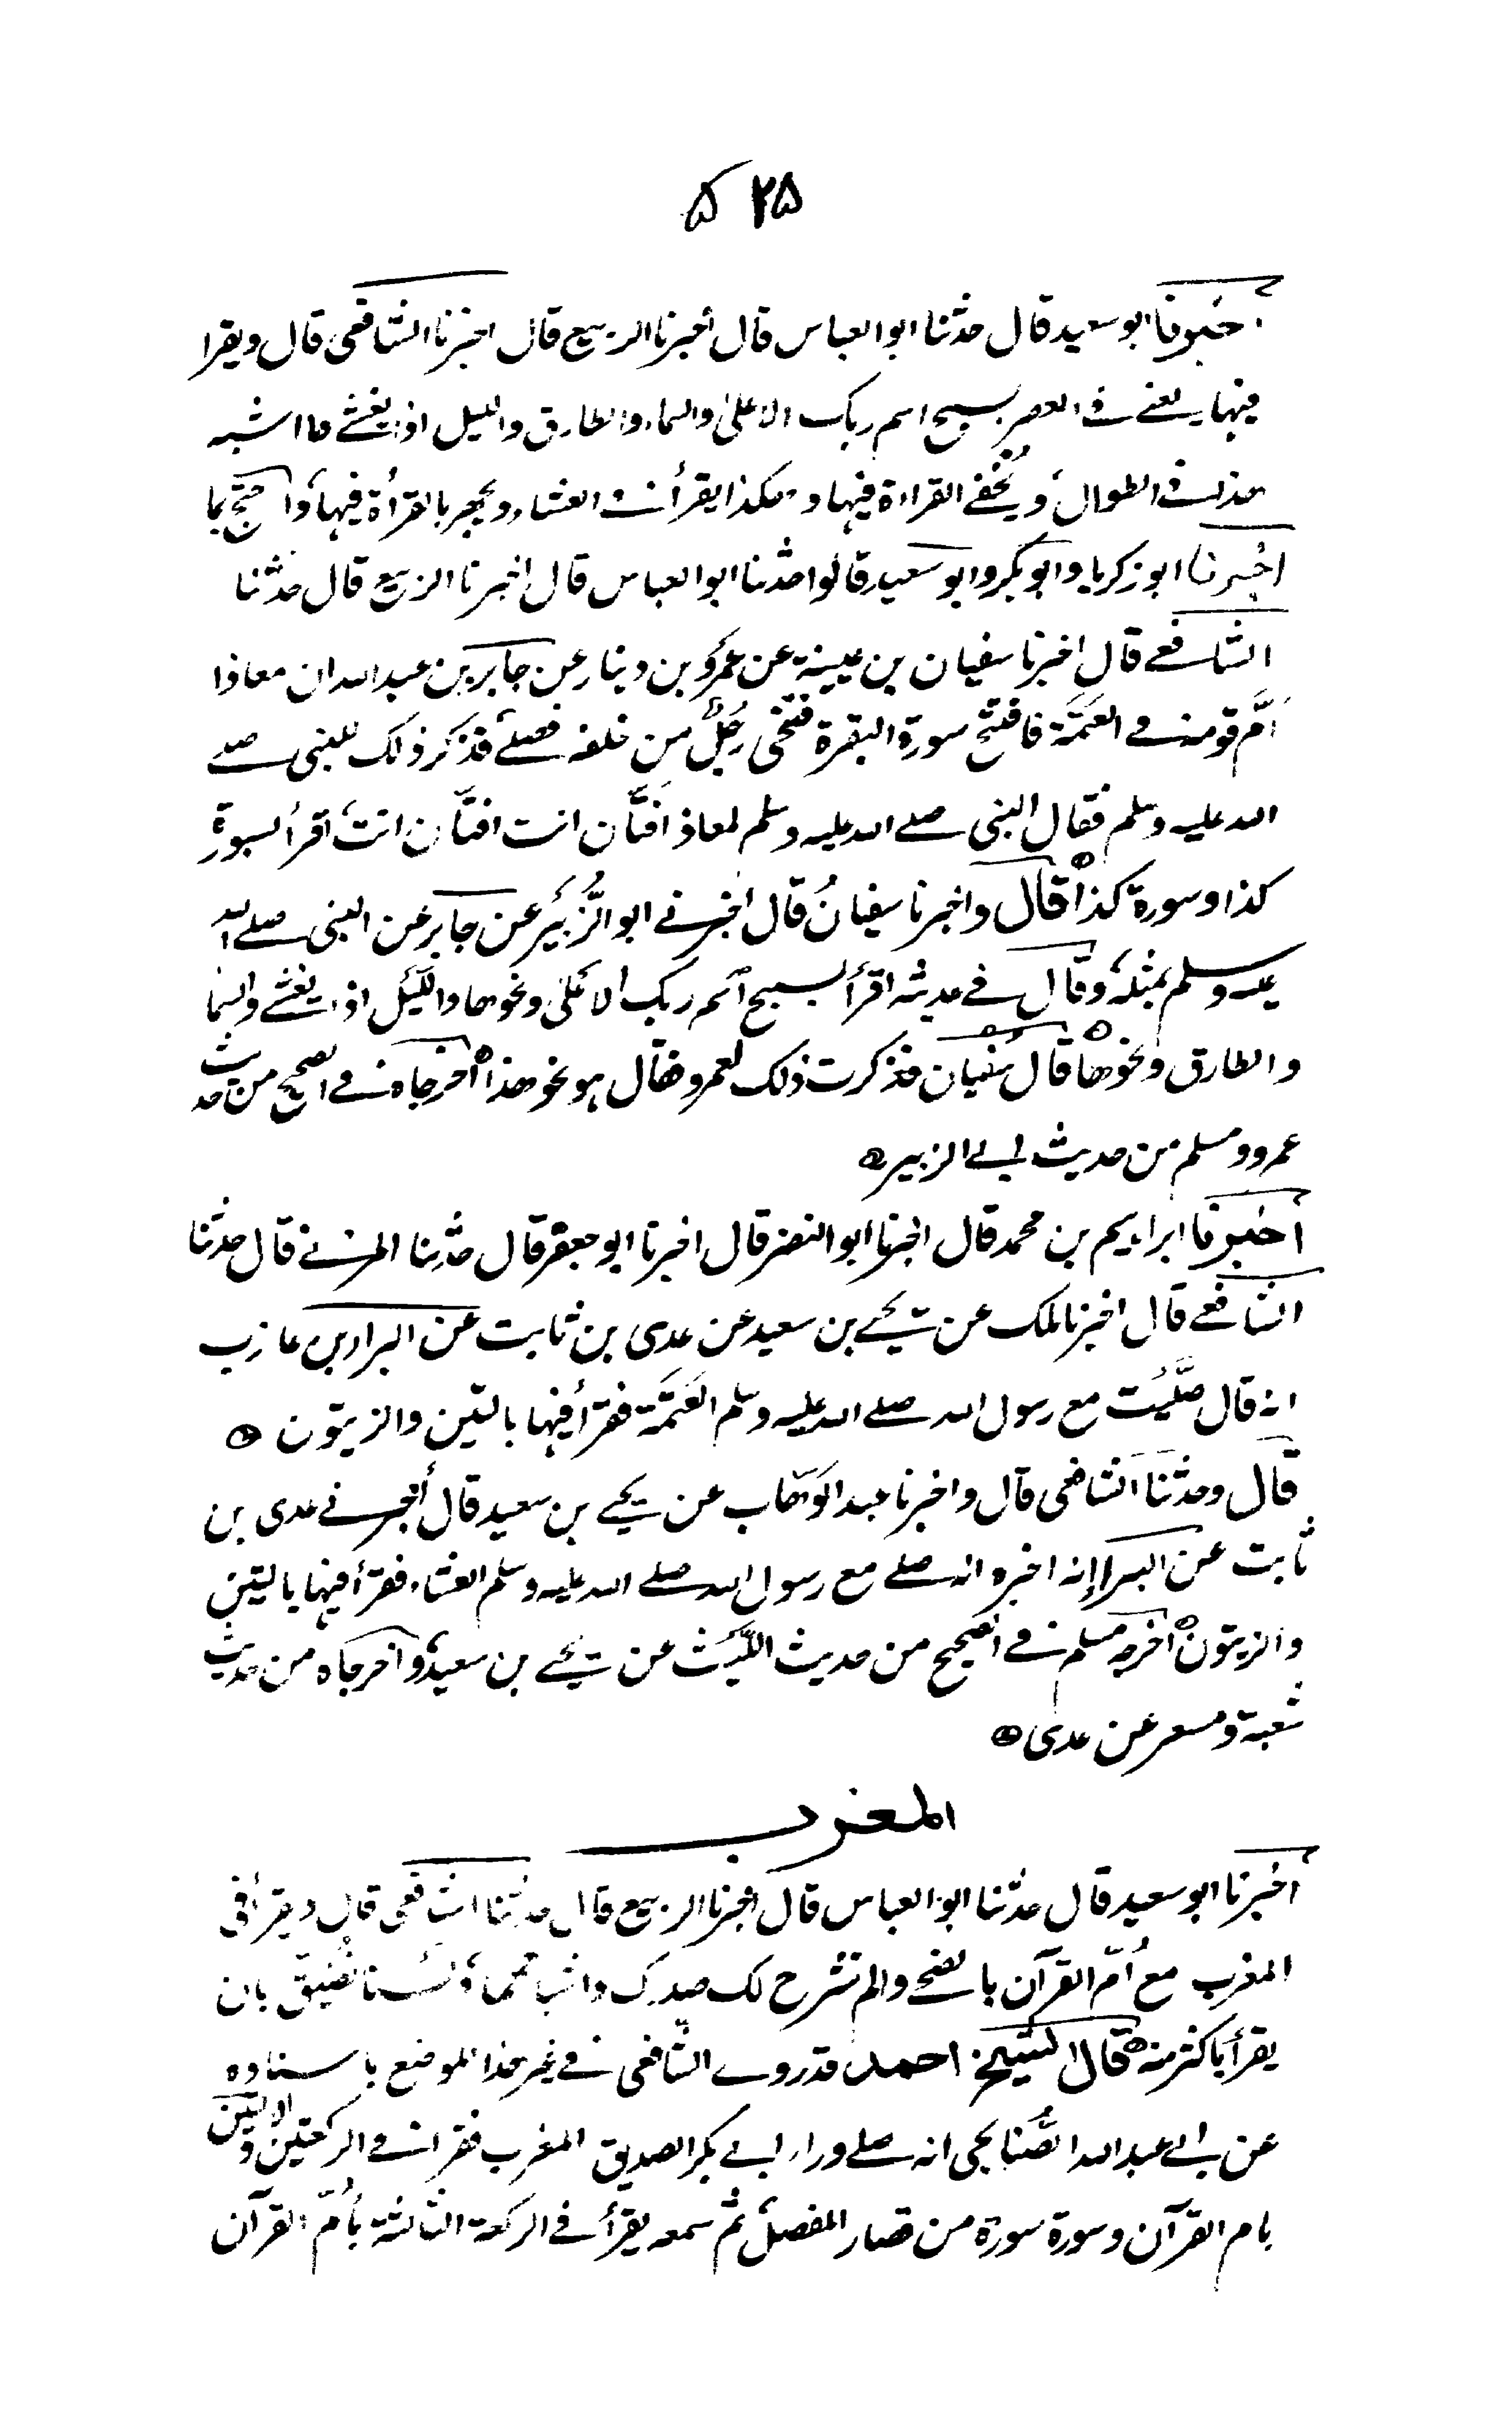 ۵ ۲۵
أخبرنا ابو سعيد قال حدثنا ابو العباس قال أخبرنا الربيع قال اخبرنا الشافعى قال ويقرا
فيها يعنے فے العصر بسبح اسم ربك الاعلى والسماء والطارق والليل اذا يغشے وما اشبه
هذا من الطوال ويخفے القراءة فيها وهكذا يقرأ فے العشاء ويجهر بالقرأة فيها واحتج بما
اخبرنا ابو زكريا وابو بكر وابو سعيد قالوا حدثنا ابو العباس قال اخبرنا الربيع قال حدثنا
الشافعے قال اخبرنا سفيان بن عيينة عن عمرو بن دينار عن جابر بن عبد الله ان معاذا
أمّ قومه فے العتمة فافتتح سورة البقرة فتنحى رجل من خلفه فصلے فذكر ذلك للنبى صلے
الله عليه وسلم فقال النبى صلے الله عليه وسلم لمعاذ افتّان انت افتّان انت اقرأ بسورة
كذا وسورة كذا قال واخبرنا سفيانُ قال اخبرنے ابو الزُّبَير عن جابر عن النبى صلے الله
عليه وسلم بمثله وقال فے حديثه اقرأ بسبح اسم ربك الاعلى ونحوها والليل اذا يغشے والسما
والطارق ونحوها قال سفيان فذكرت ذلك لعمرو فقال هو نحو هذا اخرجاه فے الصحيح من حديث
عمرو ومسلم من حديث ابے الزبير
أخبرنا ابراهيم بن محمد قال اخبرنا ابو النضر قال اخبرنا ابو جعفر قال حدثنا المزنے قال حدثنا
الشافعے قال اخبرنا ملك عن يحيے بن سعيد عن عدى بن ثابت عن البراء بن عازب
انه قال صلَّيْت مع رسول الله صلے الله عليه وسلم العَتَمَة فقرأ فيها بالتين والزيتون
قال وحدثنا الشافعى قال واخبرنا عبد الوهّاب عن يحيے بن سعيد قال أخبرنے عدى بن
ثابت عن البرا انه اخبره انه صلے مع رسول الله صلے الله عليه وسلم العشاء فقرأ فيها بالتين
والزيتون اخرجه مسلم فے الصحيح من حديث اللّيث عن يحيے بن سعيد واخرجاه من حديث
شعبة ومسعر عن عدى
المغرب
أخبرنا ابو سعيد قال حدثنا ابو العباس قال اخبرنا الربيع قال حدثنا الشافعى قال ويقرأ فى
المغرب مع اُمّ القرآن بالضحے والم نشرح لك صدرك واشباههما ولسنا نُضيّق بان
يقرأ باكثر منه قال الشيخ احمد قد روے الشّافعى فے غير هذا الموضع باسناده
عن ابے عبد الله الصُّنابحى انه صلے وراء ابے بكر الصديق المغرب فقرا فے الركعتين الاوليين
بام القرآن وسورة سورة من قصار المفصل ثم سمعه يقرأ فے الركعة الثالثة بأُمّ القرآن